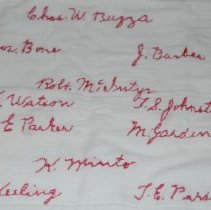 Chas. W. Buzza
Bone J. Barber
Robt. McIntyr
Watson T. S. Johnst
E Parker M. Jardin
K. Minto
Keeling T. E. Pars